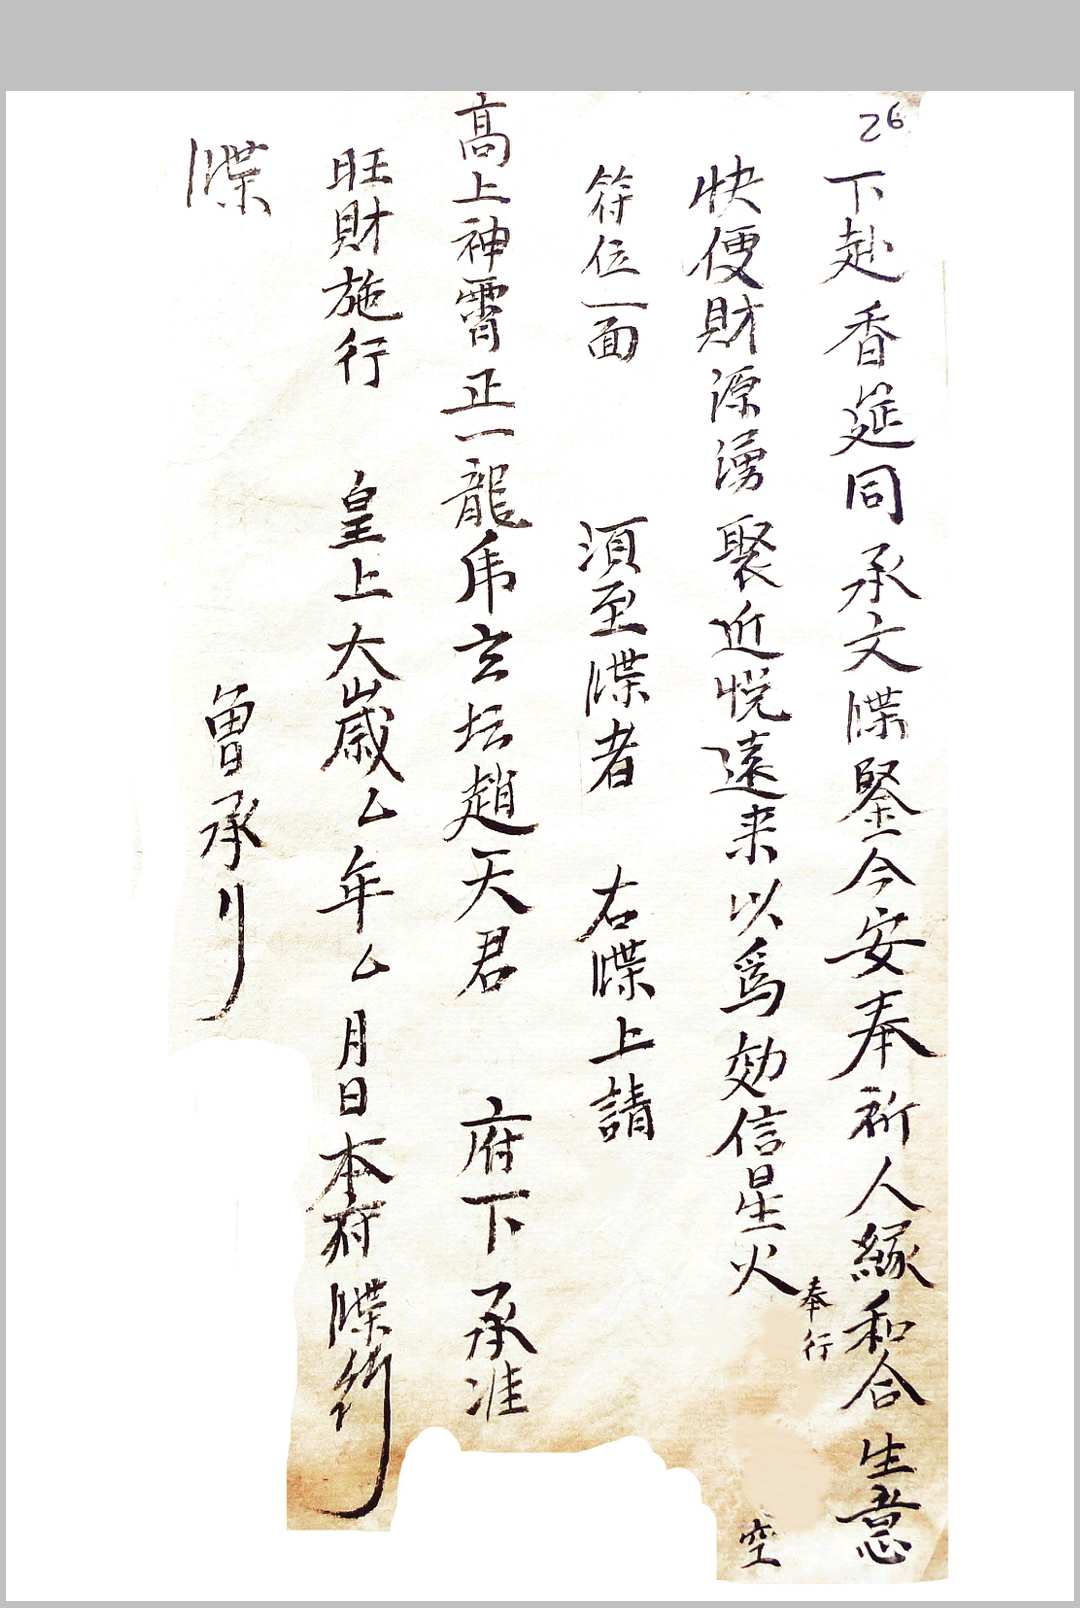 26
下赴香莚同承文牒鋻今安奉祈人緣和合生意
快便財源湧聚近悦遠来以爲効信星火
奉行
空
符位一面 須至牒者 右牒上請
高上神霄正一龍虎玄坛趙天君 府下承准
旺財施行 皇上大歲厶年厶月日本府牒行
牒 曾承行